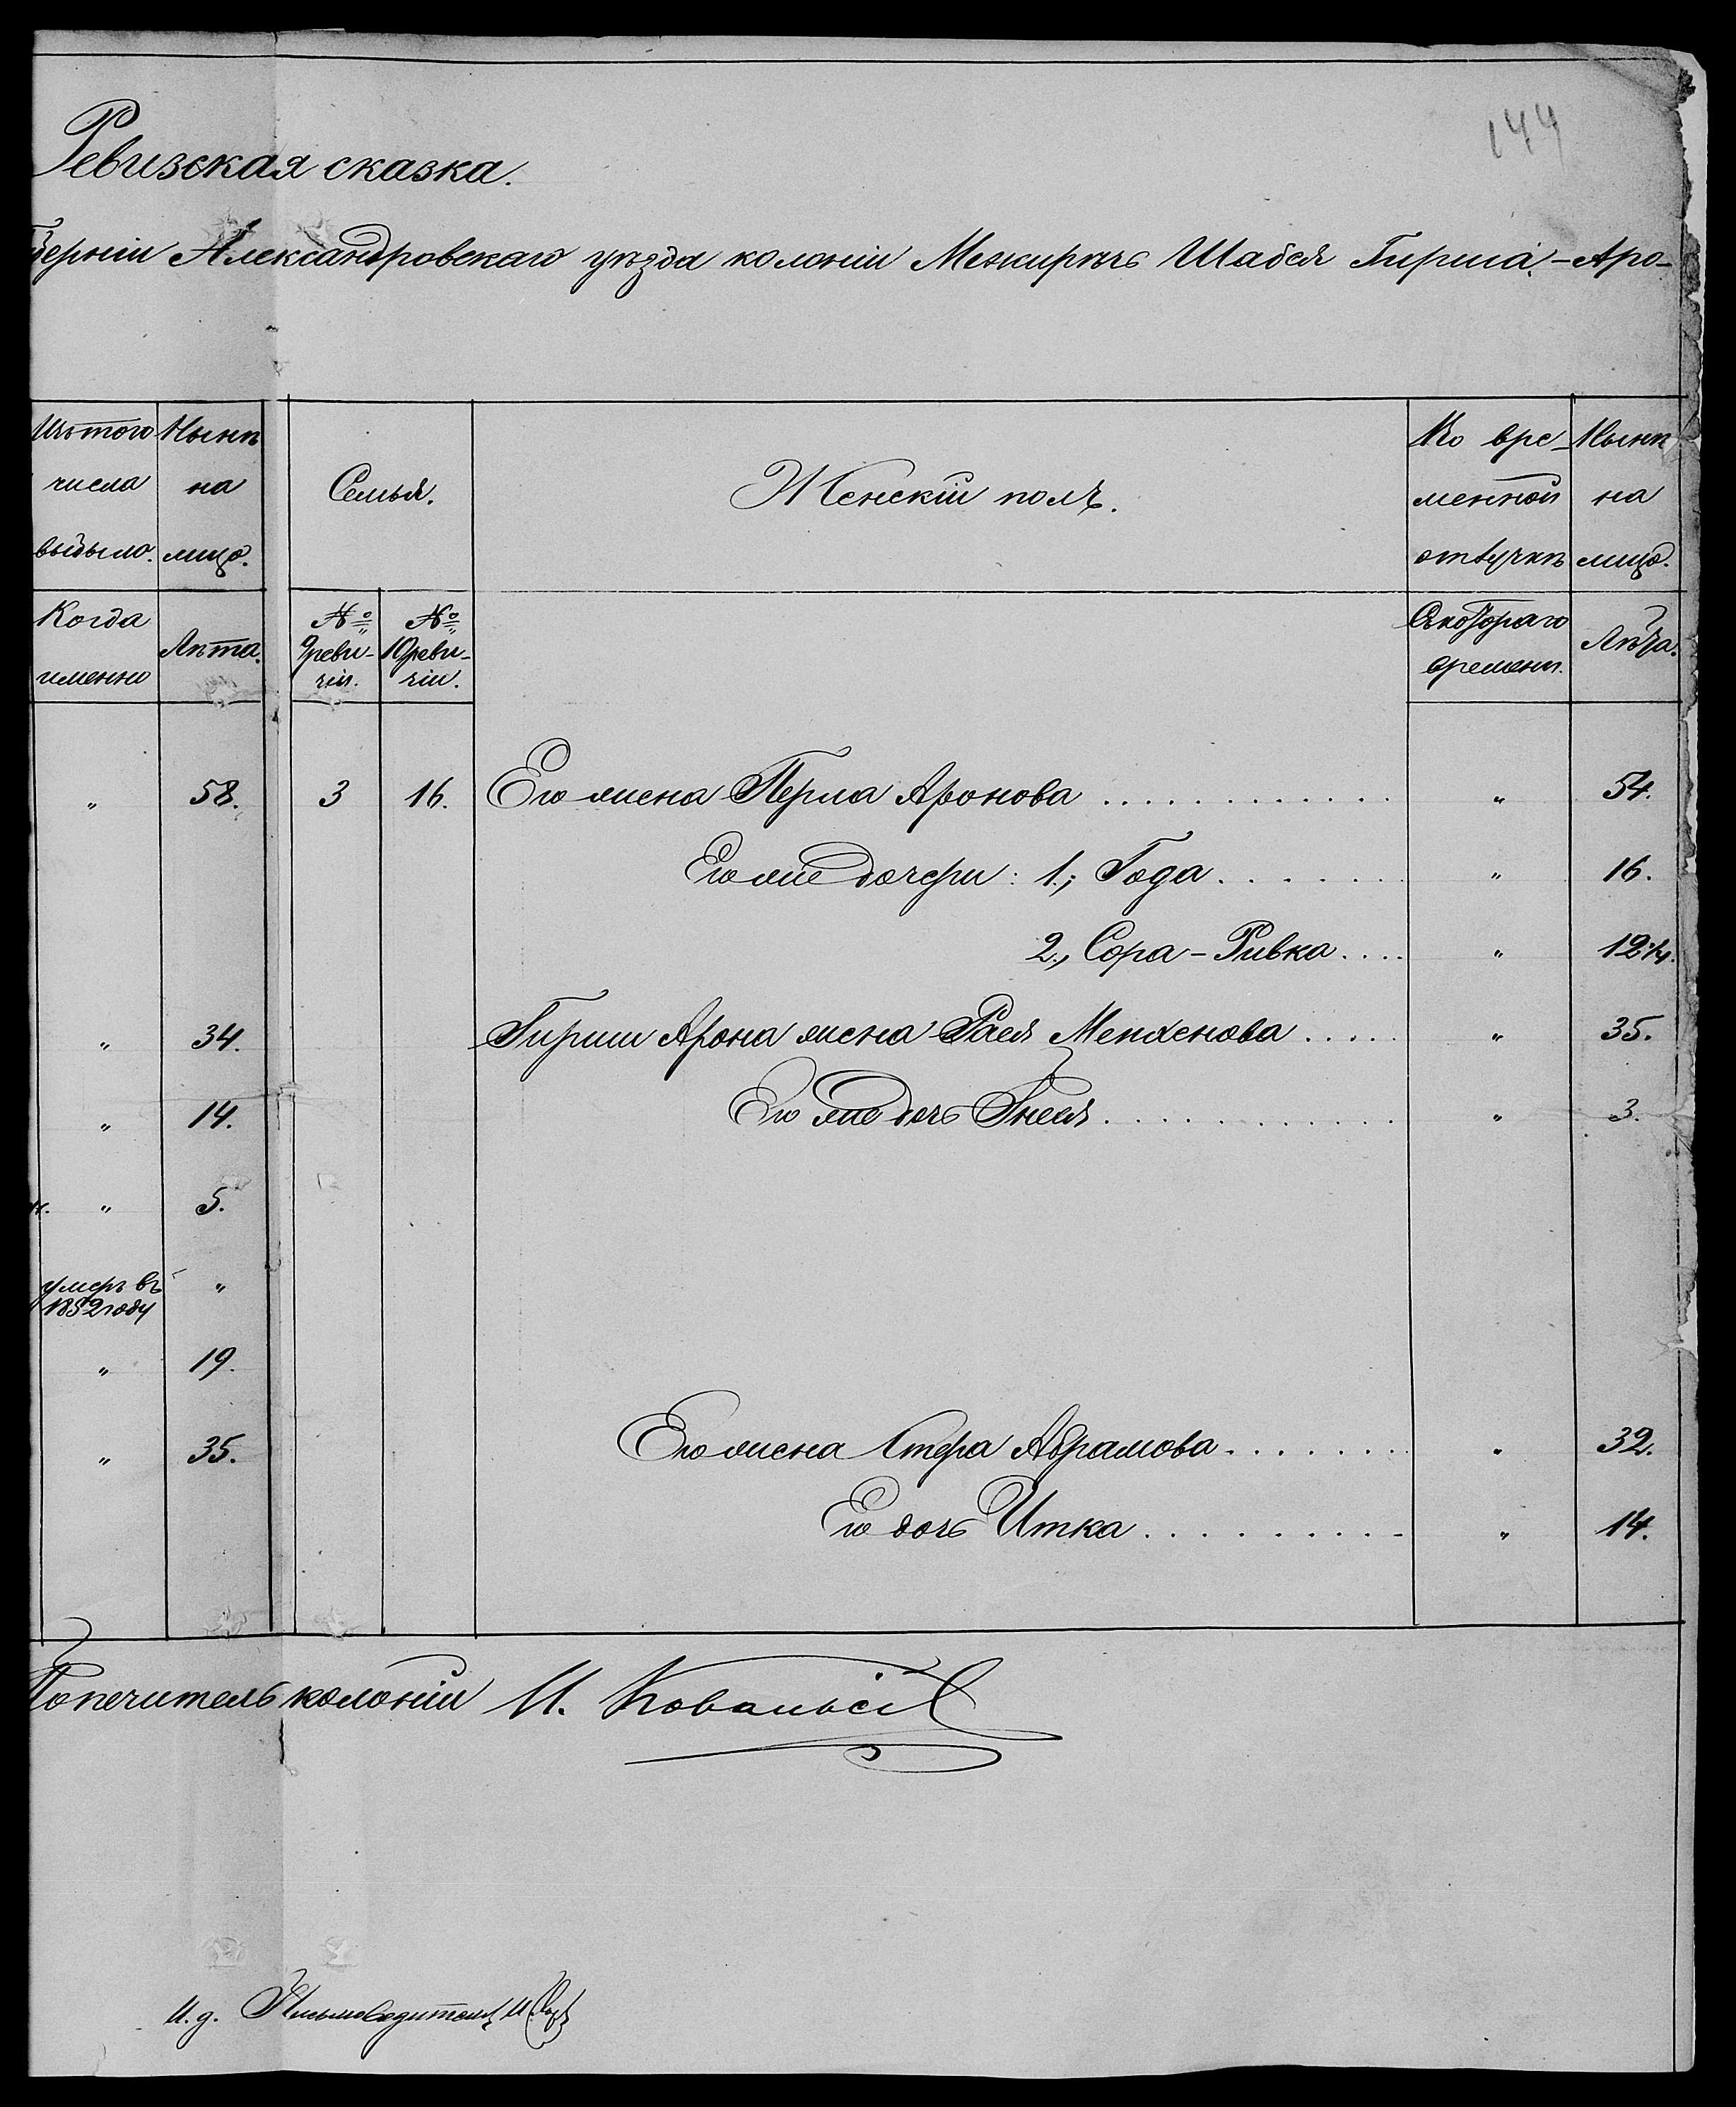 144
Ревизская сказка.
берніи Александровскаго уѣзда колоніи Межиричъ Шабся Гирша-Аро-
Изъ того числа выбыло.
Нынѣ на лицо.
Семья.
Женскій полъ.
Во вре-менной отлучкѣ
Нынѣ на лицо.
Когда именно
Лѣта.
№ 9 реви-зіи.
№ 10 реви-зіи.
Съ котораго времени.
Лѣта.
" 58. 3 16. Его жена Перла Аронова . . . . . . . . . . . . " 54.
Его же дочери: 1., Года . . . . . . . " 16.
2., Сора-Ривка . . . . " 12 1/4.
" 34. Гирши Арона жена Рася Менделева . . . . . " 35.
" 14. Его же дочь Гнеся . . . . . . . . . . . . " 3.
" 5.
умеръ въ 1852 году "
" 19.
" 35. Его жена Стера Абрамова . . . . . . . " 32.
Его дочь Итка . . . . . . . . . . " 14.
Попечитель колоніи И. Ковальскі
И. д. Письмоводителя И.